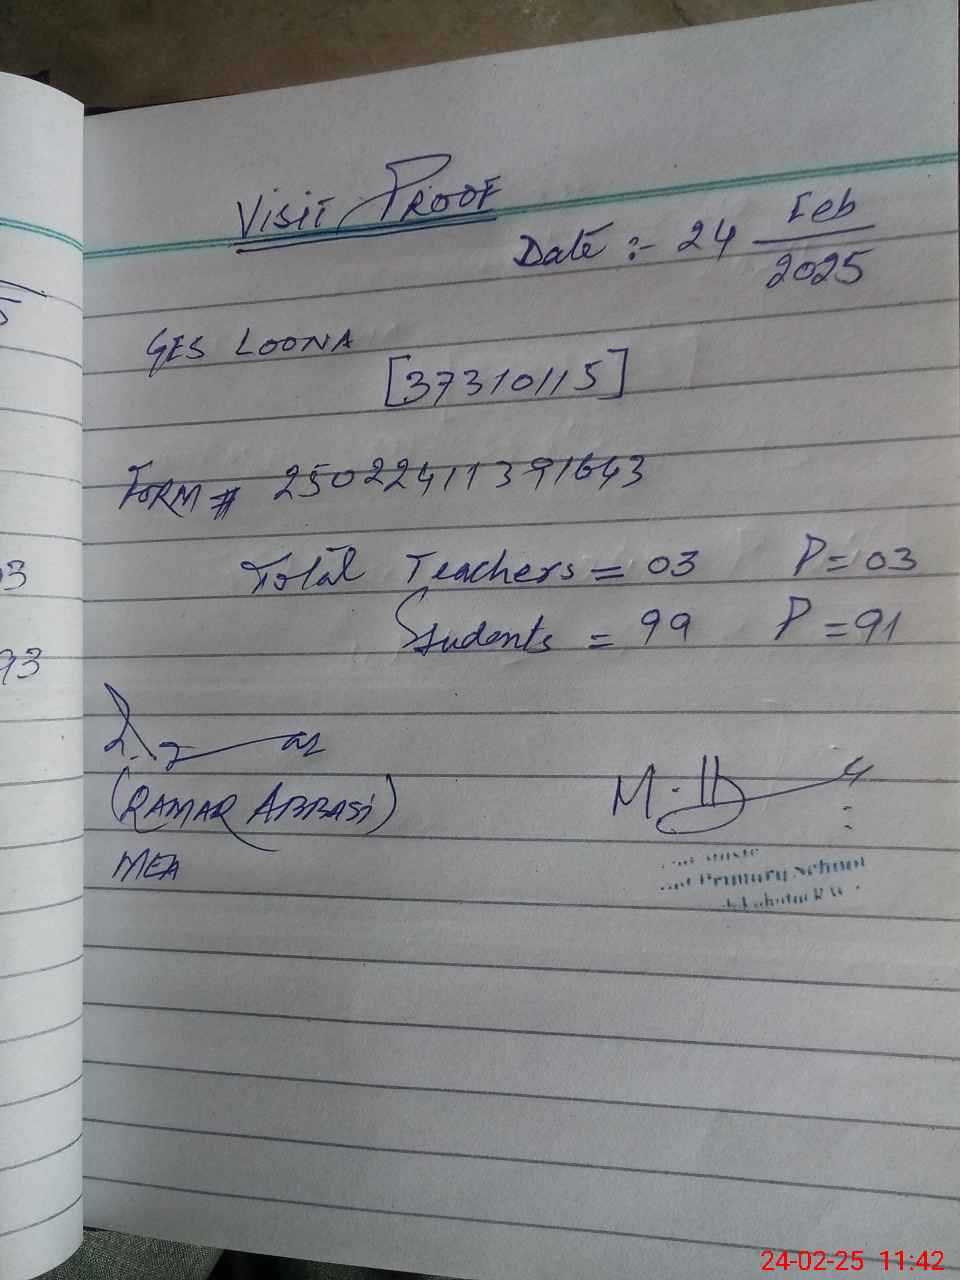 VISIT PROOF
Date :- 24 Feb
2025
GES LOONA
[37310115]
FORM # 25022411391643
Total Teachers = 03 P = 03
Students = 99 P = 91
(RAMAR ABBASI)
MEA
M.
Primary School
03
93
24-02-25 11:42